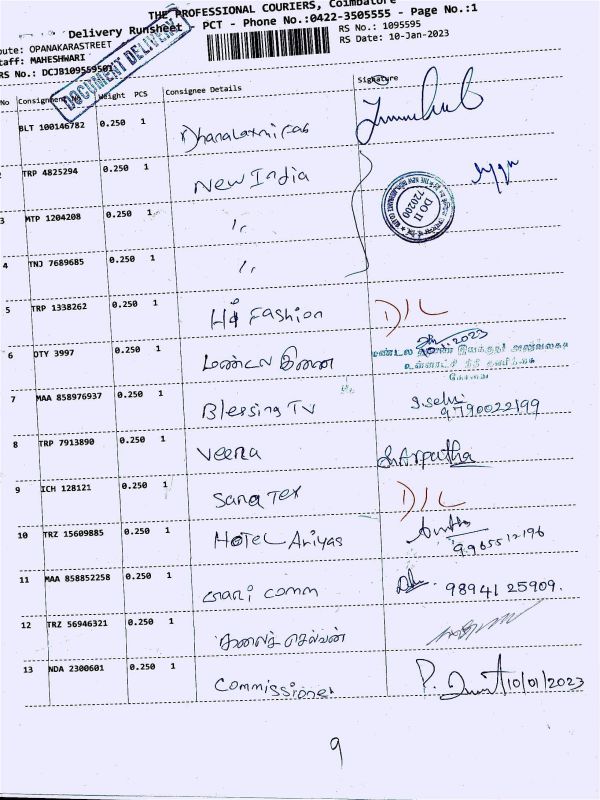 THE PROFESSIONAL COURIERS, Coimbatore
Delivery Runsheet PCT - Phone No.:0422-3505555 - Page No.:1
oute: OPANAKARASTREET RS No.: 1095595
taff: MAHESHWARI RS Date: 10-Jan-2023
RS No.: DCJB109559501
DOCUMENT DELIVERY
No Consignment Weight PCS Consignee Details Signature
BLT 100146782 0.250 1 Dhanalaxmi Fab
TRP 4825294 0.250 1 New India
DO II 720200
3 MTP 1204208 0.250 1 〃
4 TNJ 7689685 0.250 1 〃
5 TRP 1338262 0.250 1 Fashion D/L
6 OTY 3997 0.250 1 மண்டல இணை
மண்டல இணை இயக்குநர் அலுவலகம்
உள்ளாட்சி நிதி தணிக்கை
கோவை
7 MAA 858976937 0.250 1 Blessing TV S.Selvi
9790022199
8 TRP 7913890 0.250 1 Veena
9 ICH 128121 0.250 1 Sana Tex D/L
10 TRZ 15609885 0.250 1 HOTEL Ariyas
9965512196
11 MAA 858852258 0.250 1 mani comm 98941 25909.
12 TRZ 56946321 0.250 1 கலைச் செல்வன்
13 NDA 2300601 0.250 1 Commissioner P. 10/01/2023
9